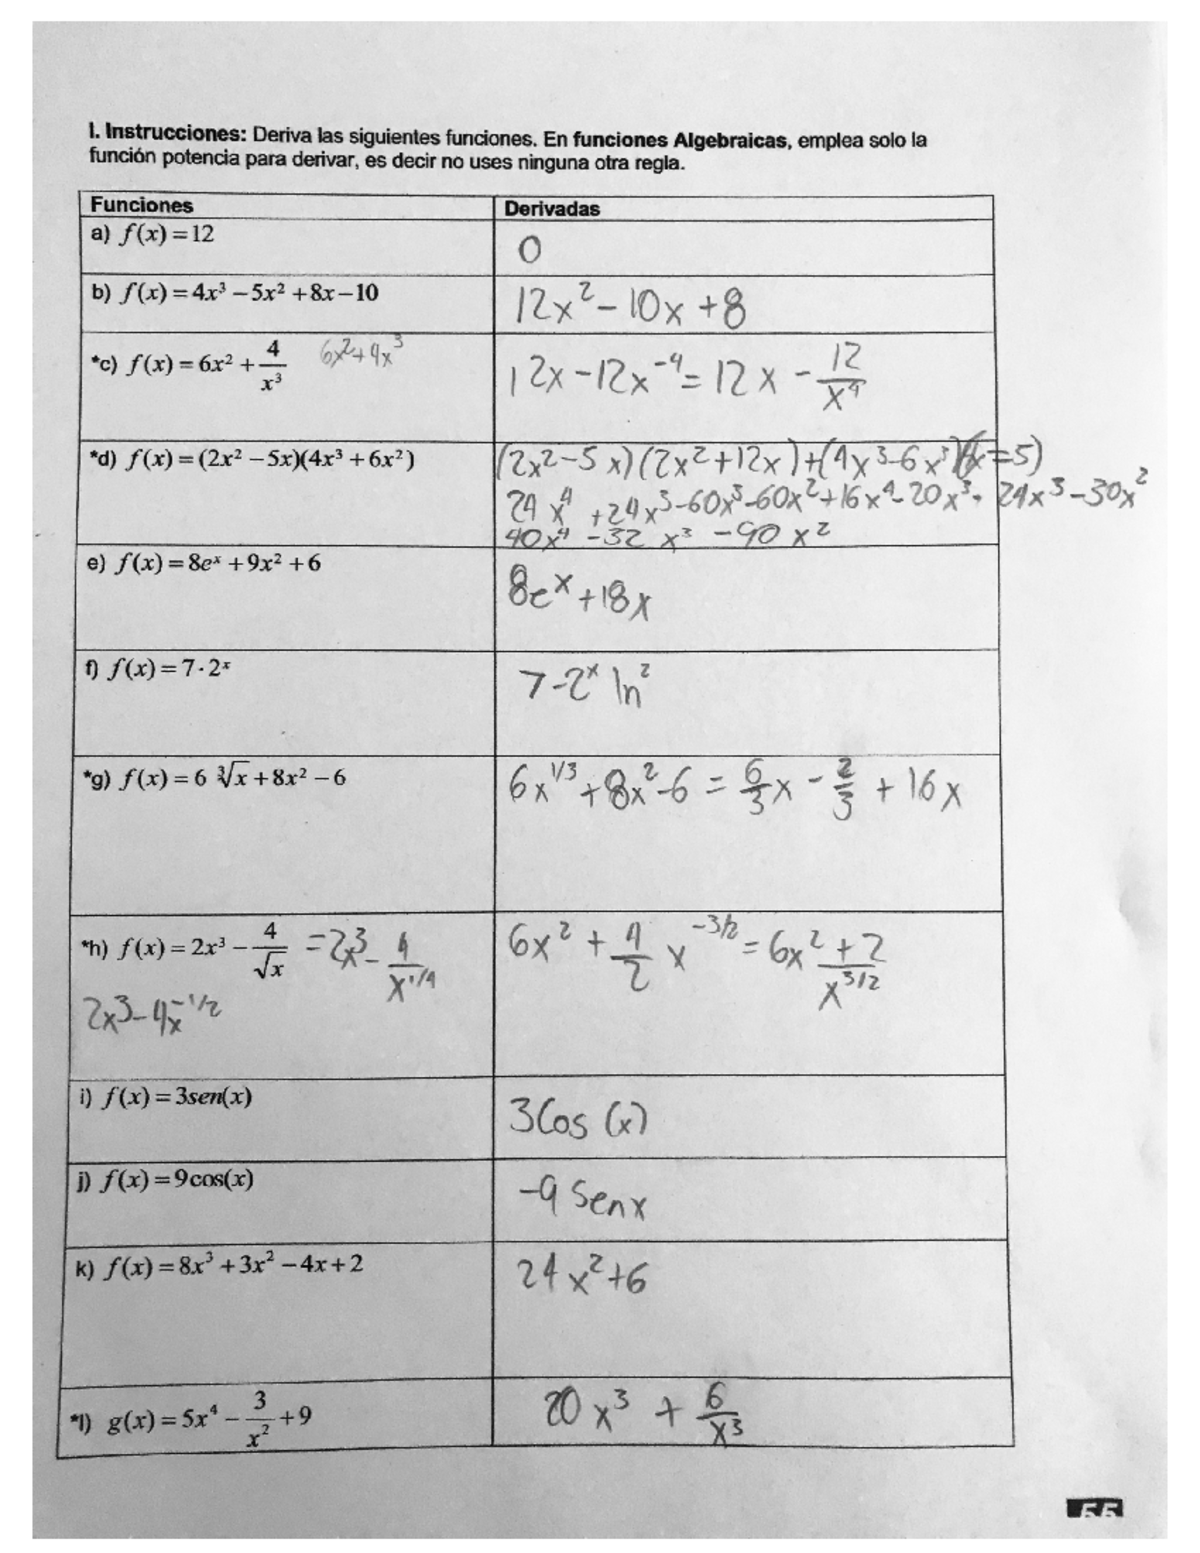 I. Instrucciones: Deriva las siguientes funciones. En funciones Algebraicas, emplea solo la
función potencia para derivar, es decir no uses ninguna otra regla.
Funciones Derivadas
a) f(x) = 12 0
b) f(x) = 4x³ – 5x² + 8x – 10 12x² – 10x + 8
*c) f(x) = 6x² + 4/x³ 6x² + 4x³ 12x – 12x⁻⁴ = 12x – 12/x⁴
*d) f(x) = (2x² – 5x)(4x³ + 6x²) (2x² – 5x)(2x² + 12x) + (4x³ – 6x³)(4x = 5)
24x⁴ + 24x³ – 60x³ – 60x² + 16x⁴ – 20x³ - 24x³ – 30x²
40x⁴ – 32x³ – 90x²
e) f(x) = 8eˣ + 9x² + 6 8eˣ + 18x
f) f(x) = 7 · 2ˣ 7 - 2ˣ ln²
*g) f(x) = 6 ∛x + 8x² – 6 6x^1/3 + 8x² – 6 = 6/3 x – 2/3 + 16x
*h) f(x) = 2x³ – 4/√x = 2x³ – 4/x^1/4 6x² + 4/2 x^-3/2 = 6x² + 2/x^3/2
2x³ – 4x^-1/2
i) f(x) = 3sen(x) 3Cos (x)
j) f(x) = 9cos(x) –9 Sen x
k) f(x) = 8x³ + 3x² – 4x + 2 24x² + 6
*l) g(x) = 5x⁴ – 3/x² + 9 20x³ + 6/x³